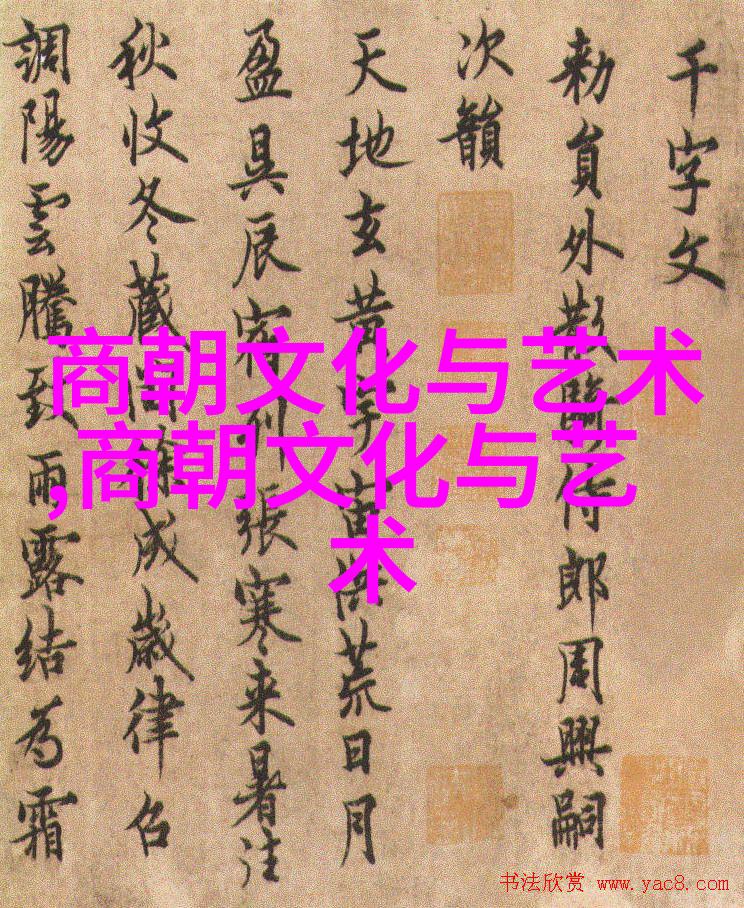 千字文
勑員外散騎侍郎周興嗣
次韻
天地玄黄宇宙洪荒日月
盈昃辰宿列張寒来暑往
秋收冬蔵閏餘成嵗律召
調陽雲騰致雨露結為霜
商朝文化与艺术
,商朝文化与艺
术
书法欣赏 www.yac8.com